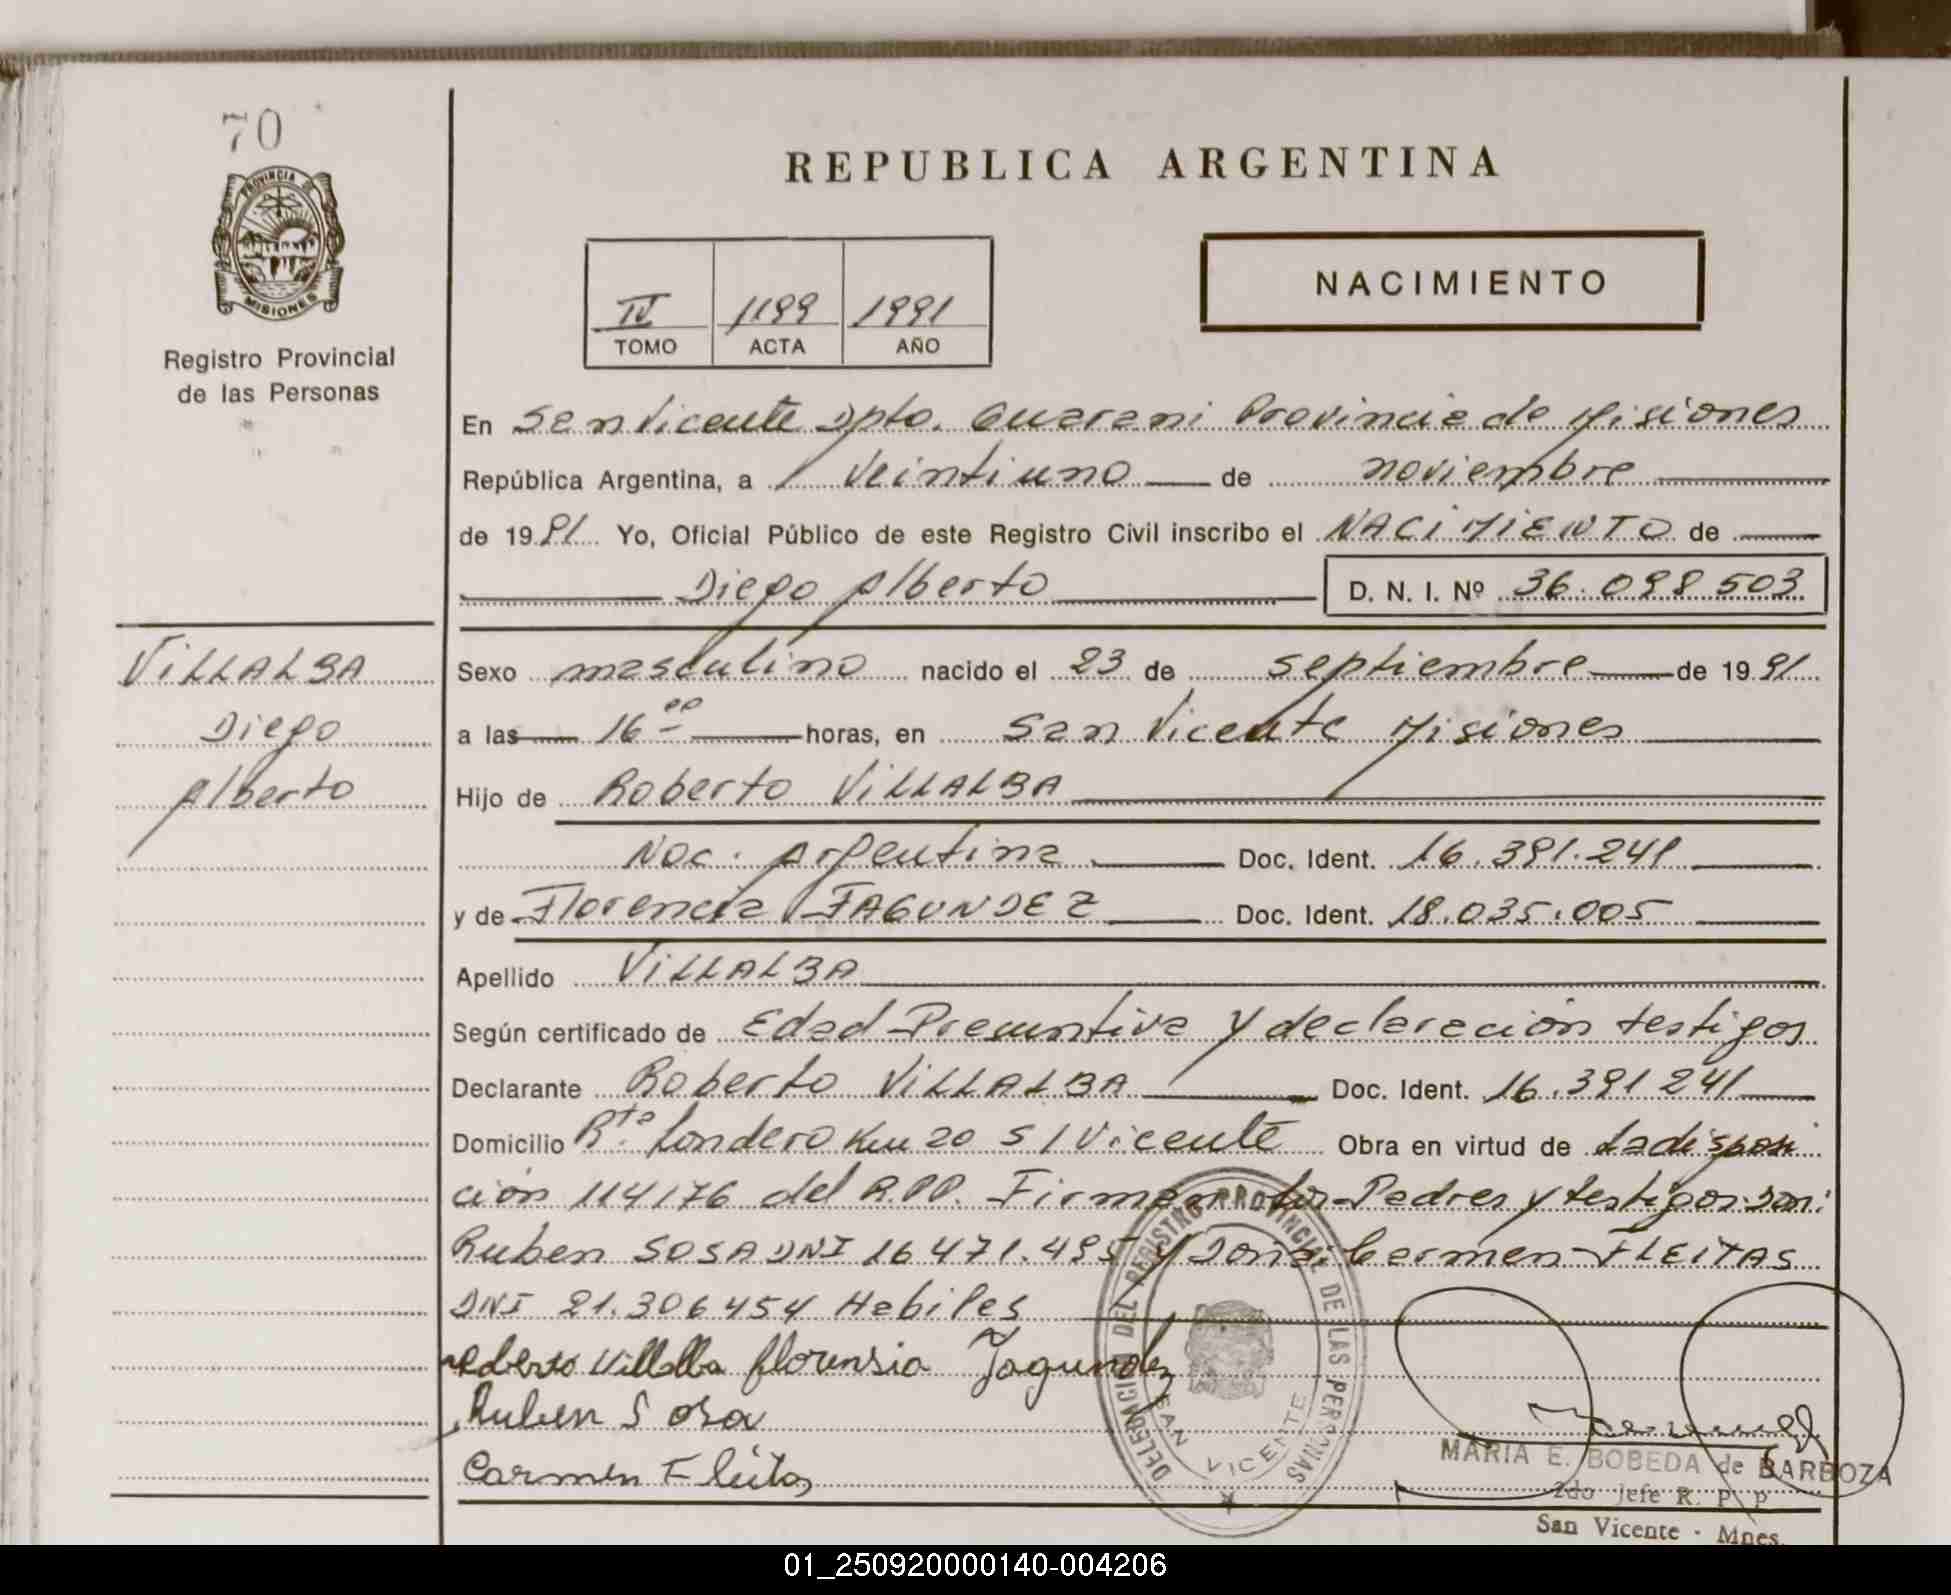 70
PROVINCIA DE
MISIONES
Registro Provincial
de las Personas
REPUBLICA ARGENTINA
IV 1199 1991
TOMO ACTA AÑO
NACIMIENTO
En San Vicente Dpto. Guarani Provincia de Misiones
República Argentina, a Veintiuno de noviembre
de 1991 Yo, Oficial Público de este Registro Civil inscribo el NACIMIENTO de
Diego Alberto D. N. I. Nº 36.098.503
VILLALBA
Diego
Alberto
Sexo masculino nacido el 23 de septiembre de 1991
a las 16 horas, en San Vicente Misiones
Hijo de Roberto VILLALBA
Nac. Argentina Doc. Ident. 16.391.241
y de Florencia FAGUNDEZ Doc. Ident. 18.035.005
Apellido VILLALBA
Según certificado de Edad Presuntiva y declaración testigos
Declarante Roberto VILLALBA Doc. Ident. 16.391241
Domicilio Rta Londero Km 20 S/Vicente Obra en virtud de La disposi
ción 114/76 del R.P.P. Firman los Padres y testigos: Don:
Ruben SOSA DNI 16471.495 y Dona: Carmen FLEITAS
DNI 21.306454 Habiles
Roberto Villalba florensia Fagundez
Ruben Sosa
Carmen Fleitas
DELEGACION DEL REGISTRO PROVINCIAL DE LAS PERSONAS
SAN VICENTE
MARIA E. BOBEDA de BARBOZA
2do Jefe R. P. P
San Vicente - Mnes.
01_250920000140-004206